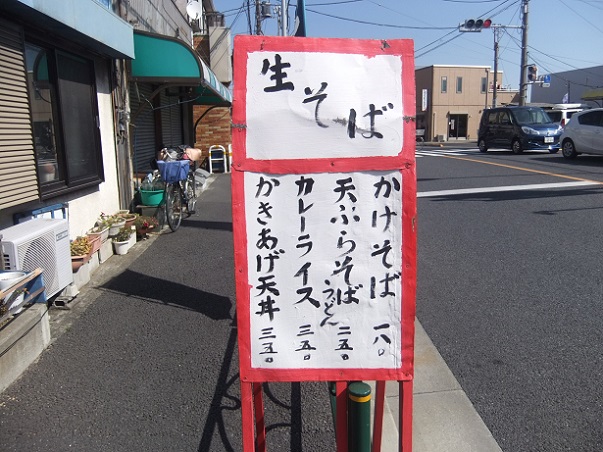 生そば
かけそば 一八〇
天ぷらそば うどん 二五〇
カレーライス 三五〇
かきあげ天丼 三五〇